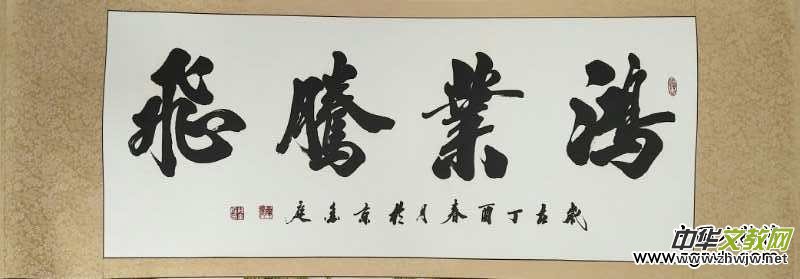 鴻業騰飛
歲在丁酉春月於京庭
中华文教网
www.zhwjw.net